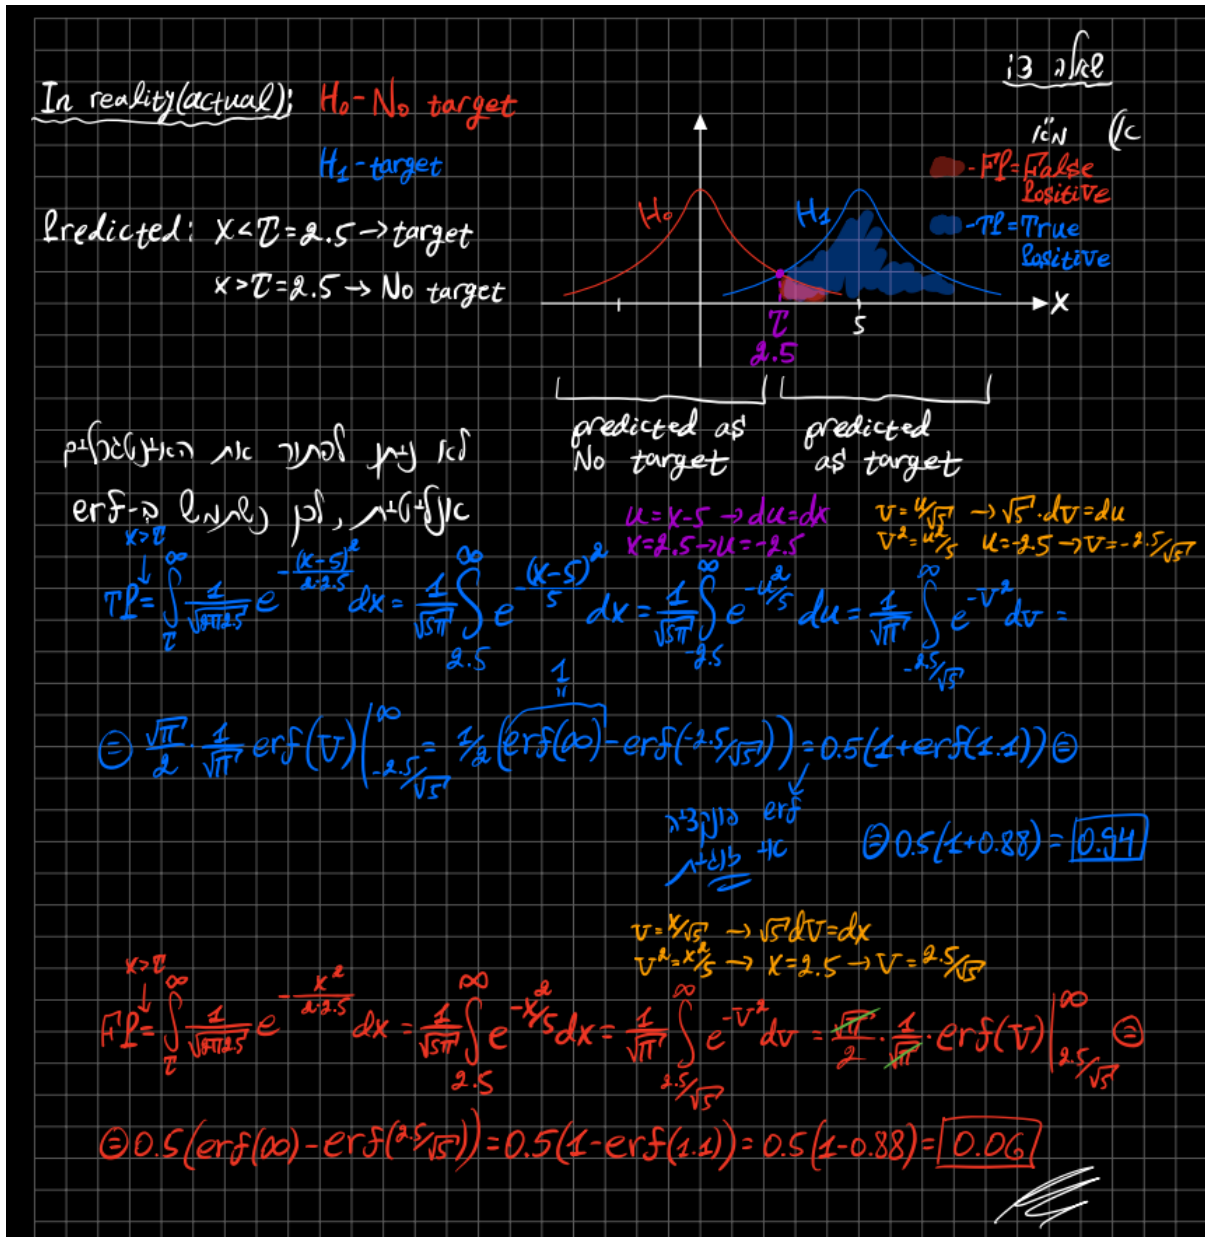 שאלה 3:
א) מא
In reality(actual): H₀-No target
H₁-target
Predicted: x<τ=2.5→target
x>τ=2.5→No target
H₀
H₁
-FP=False
Positive
-TP=True
Positive
x
τ
2.5
5
predicted as
No target
predicted
as target
לא ניתן לפתור את האינטגרלים
אנליטית, לכן נשתמש ב-erf
u=x-5 → du=dx
x=2.5→u=-2.5
v=u/√5 → √5·dv=du
v²=u²/5 u=-2.5→v=-2.5/√5
x>τ
TP=∫_τ^∞ 1/√(2π2.5) e^(-(x-5)²/(2·2.5)) dx = 1/√(5π) ∫_2.5^∞ e^(-(x-5)²/5) dx = 1/√(5π) ∫_-2.5^∞ e^(-u²/5) du = 1/√π ∫_(-2.5/√5)^∞ e^(-v²) dv =
⊜ √π/2 · 1/√π erf(v)|_(-2.5/√5)^∞ = 1/2(erf(∞)-erf(-2.5/√5)) = 0.5(1+erf(1.1)) ⊜
1
"
erf פונקציה
אי זוגית
⊜ 0.5(1+0.88) = 0.94
v=x/√5 → √5dv=dx
v²=x²/5 → x=2.5 → v=2.5/√5
x>τ
FP=∫_τ^∞ 1/√(2π2.5) e^(-x²/(2·2.5)) dx = 1/√(5π) ∫_2.5^∞ e^(-x²/5) dx = 1/√π ∫_(2.5/√5)^∞ e^(-v²) dv = √π/2 · 1/√π · erf(v)|_(2.5/√5)^∞ ⊜
⊜ 0.5(erf(∞)-erf(2.5/√5)) = 0.5(1-erf(1.1)) = 0.5(1-0.88) = 0.06